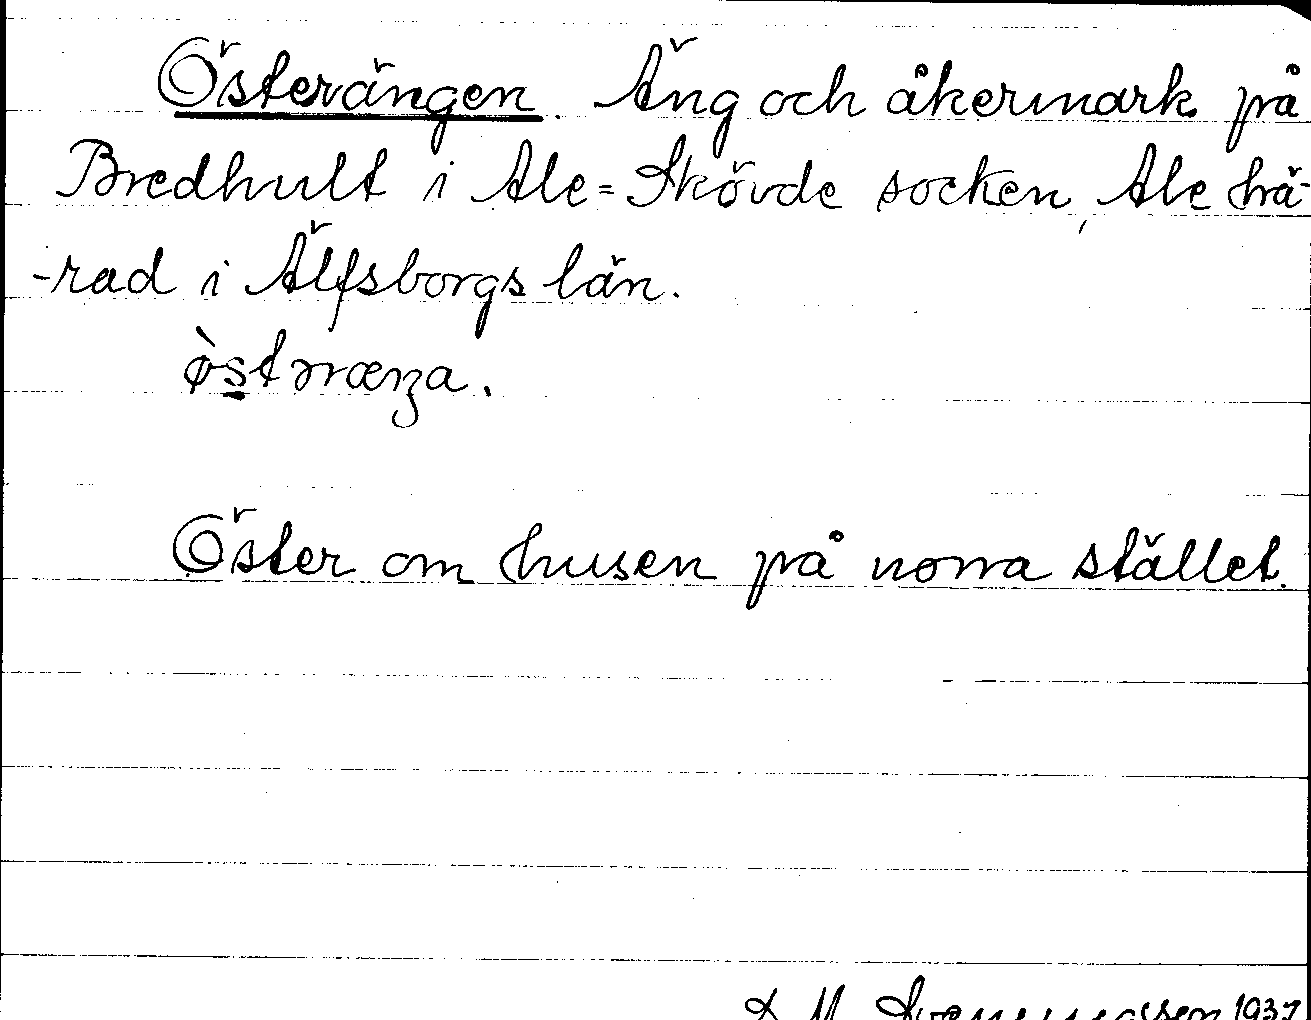 Österängen. Äng och åkermark på
Bredhult i Ale=Skövde socken, Ale hä-
-rad i Älfsborgs län.
Öster om husen på norra stället.
1937